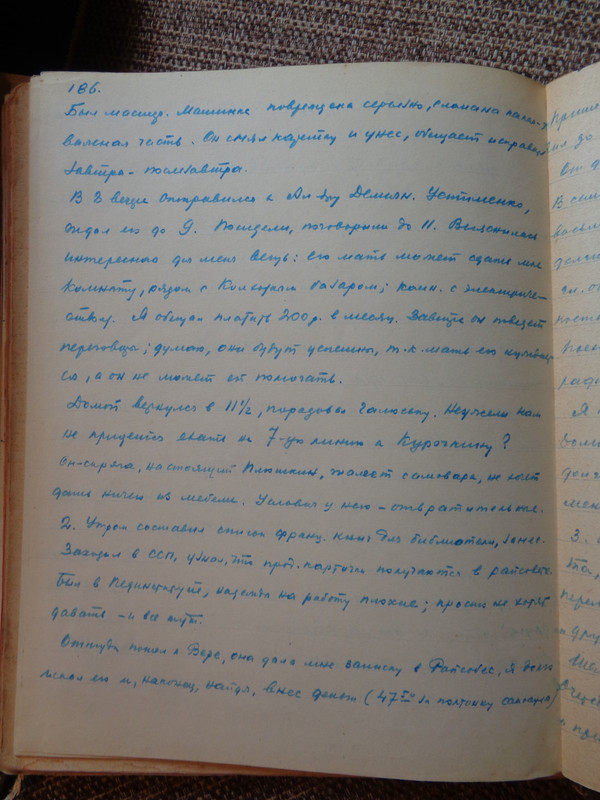 186.
Был мастер. Машинка повреждена серьезно, сломана
важная часть. Он снял каретку и унес, обещает исправить
завтра-послезавтра.
В 2 вечера отправился к Ал-дру Демьян. Устименко,
ждал его до 9. Посидели, поговорили до 11. Выяснилась
интересная для меня вещь: его мать может сдать мне
комнату, рядом с Колхозным базаром; комн. с электриче-
ством. Я обещал платить 200 р. в месяц. Завтра он поведет
переговоры; думаю, они будут успешны, т.к. мать его нуждает-
ся, а он не может ей помогать.
Домой вернулся в 11½, порадовал Галюську. Неужели нам
не придется ехать на 7-ую линию к Курочкину?
Он-скряга, настоящий Плюшкин, жалеет самовара, не хочет
дать ничего из мебели. Условия у него - отвратительные.
2. Утром составил список франц. книг для библиотеки, занес.
Заходил в ССП, узнал, что прот. карточки получаются в райсовете.
Был в Пединституте, надежды на работу плохие; просто не хотят
давать - и все тут.
Оттуда пошел к Вере, она дала мне записку в Райсобес, я долго
искал его и, наконец, найдя, внес деньги (47